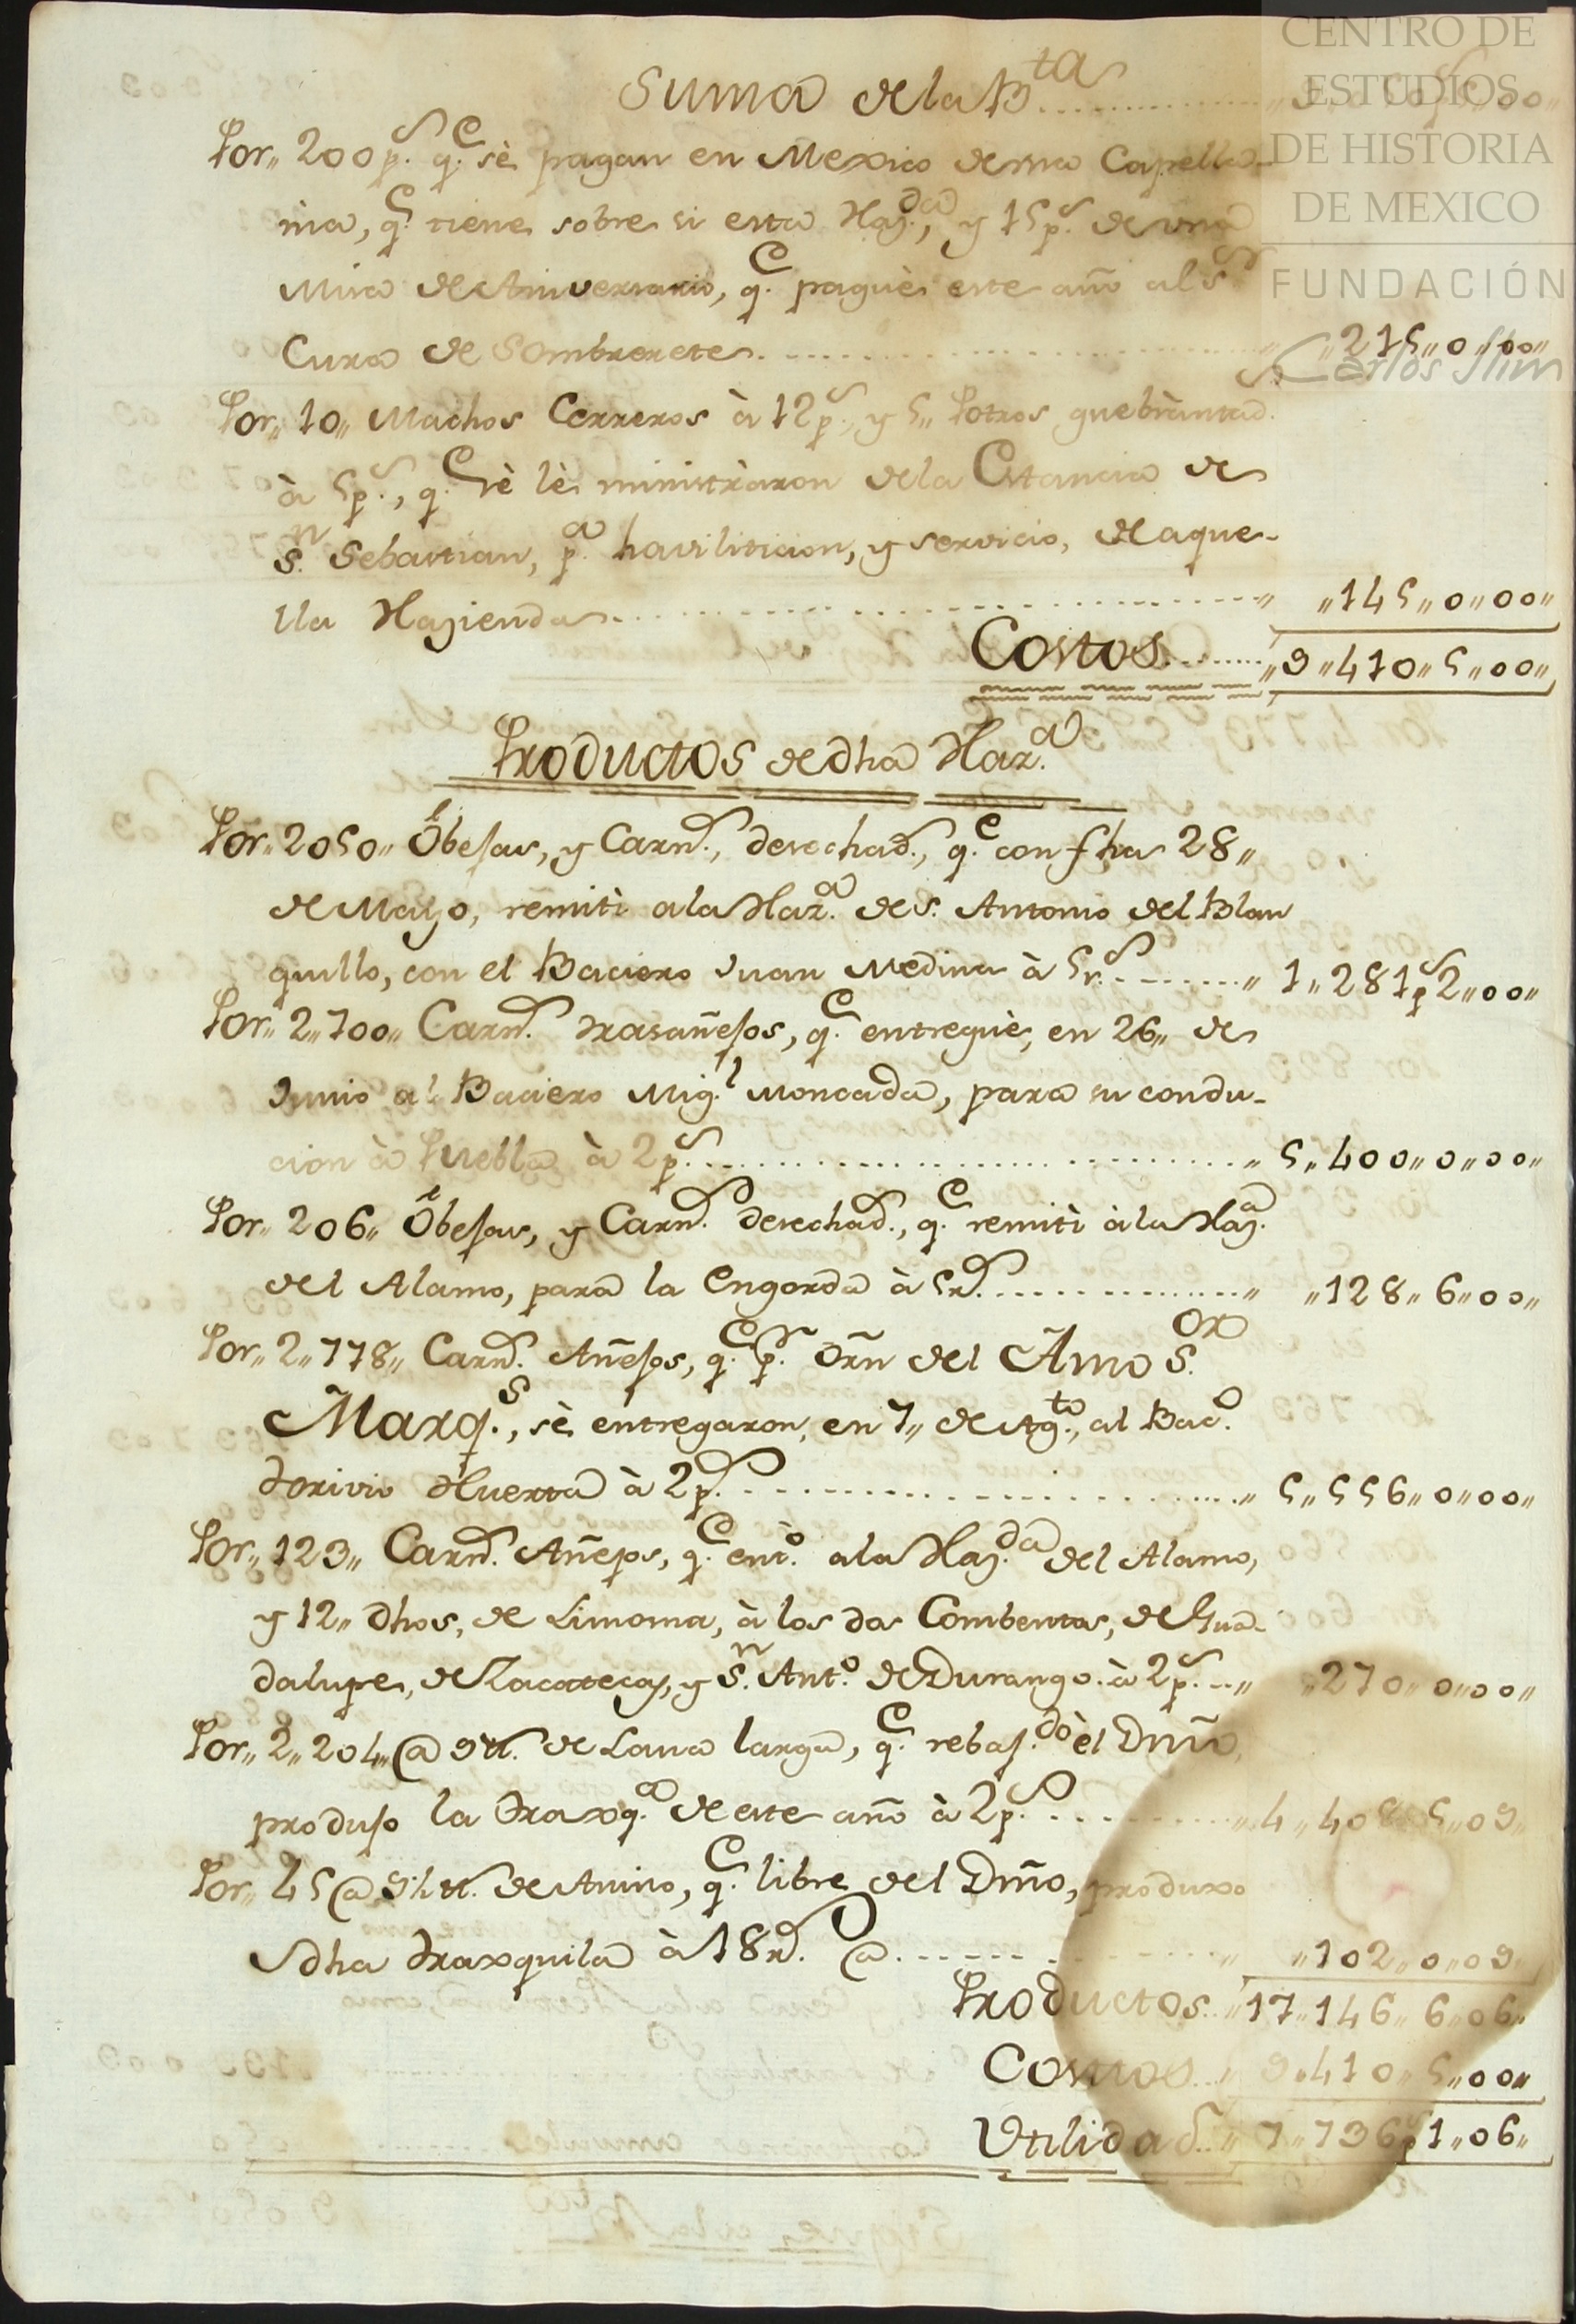 CENTRO DE
ESTUDIOS
DE HISTORIA
DE MEXICO
FUNDACIÓN
Carlos Slim
Suma de la B.ta
Por,, 200 p.s q.e sè pagan en Mexico de una Capella-
nia, q.e tiene sobre si esta Haz.da, y 15 p.s de una
Misa de Aniversario, q.e paguè este año al S.r
Cura de Sombrerete. ,, ,,215,,0,,00,,
Por,, 10,, Machos Cerreros à 12 p.s, y 5,, Potros quebràntad.s
à 5 p.s, q.e sè lè ministràron de la Estancia de
S.n Sebastian, p.a haviliticion, y servicio, de aque-
lla Hazienda. ,, ,,145,,0,,00,,
Costos. ,,9,,410,,5,,00,,
Productos de dha Haz.a
Por,, 2050,, Obejas, y Carn.s, desechad.s, q.e con fha 28,,
de Mayo, remitì a la Haz.a de S. Antonio del Blan
quillo, con el Baciero Juan Medina à 5 r.s ,, 1,,281 p.s 2,,00,,
Por,, 2,,700,, Carn.s trasañejos, q.e entreguè, en 26,, de
Junio al Baciero Mig.l Moncada, para su condu-
cion à Puebla à 2 p.s ,, 5,,400,,0,,00,,
Por,, 206,, Obejas, y Carn.s desechad.s, q.e remitì à la Haz.a
del Alamo, para la Engorda à 5 r.s ,, ,,128,,6,,00,,
Por,, 2,,778,, Carn.s Añejos, q.e p.r Orñ del Amo S.or
Marq.s, sè entregaron, en 7,, de Ag.to, al Bac.o
Torivio Huerta à 2 p.s ,, 5,,556,,0,,00,,
Por,, 123,, Carn.s Añejos, q.e ent.o a la Haz.da del Alamo,
y 12,, dhos, de Limosna, à los dos Combentos, de Gua-
dalupe, de Zacatecas, y S.n Ant.o de Durango. à 2 p.s ,, ,,270,,0,,00,,
Por,, 2,,204,, @ 9 lb. de Lana larga, q.e rebaj.do èl Dmõ,
produjo la Traxq.a de este año à 2 p.s ,, 4,,408,,5,,09,,
Por,, 45 @ 9½ lb. de Anino, q.e libre del Dmõ, produxo
dha Traxquila à 18 r.s @. ,, ,,102,,0,,09,,
Productos. ,,17,,146,,6,,06,,
Costos. ,, 9,,410,,5,,00,,
Utilidad. ,, 7,,736 p.s 1,,06,,